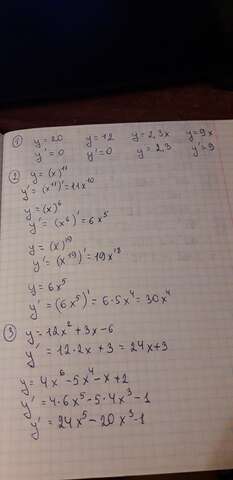 ① y=20 y=12 y=2,3x y=9x
y'=0 y'=0 y=2,3 y'=9
② y=(x)¹¹
y'=(x¹¹)'=11x¹⁰
y=(x)⁶
y'=(x⁶)'=6x⁵
y=(x)¹⁹
y'=(x¹⁹)'=19x¹⁸
y=6x⁵
y'=(6x⁵)'=6·5x⁴=30x⁴
③ y=12x²+3x-6
y'=12·2x+3=24x+3
y=4x⁶-5x⁴-x+2
y'=4·6x⁵-5·4x³-1
y'=24x⁵-20x³-1